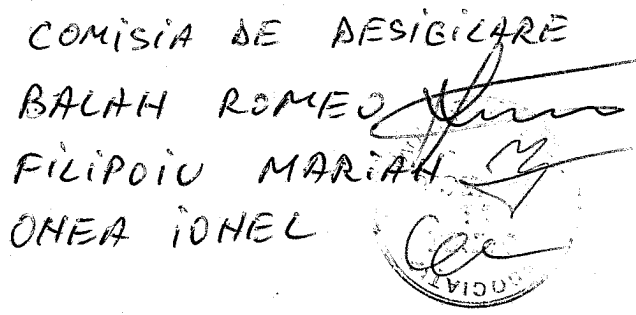 COMISIA DE DESIGILARE
BALAN ROMEO
FILIPOIU MARIAN
ONEA IONEL
ASOCIAȚIA